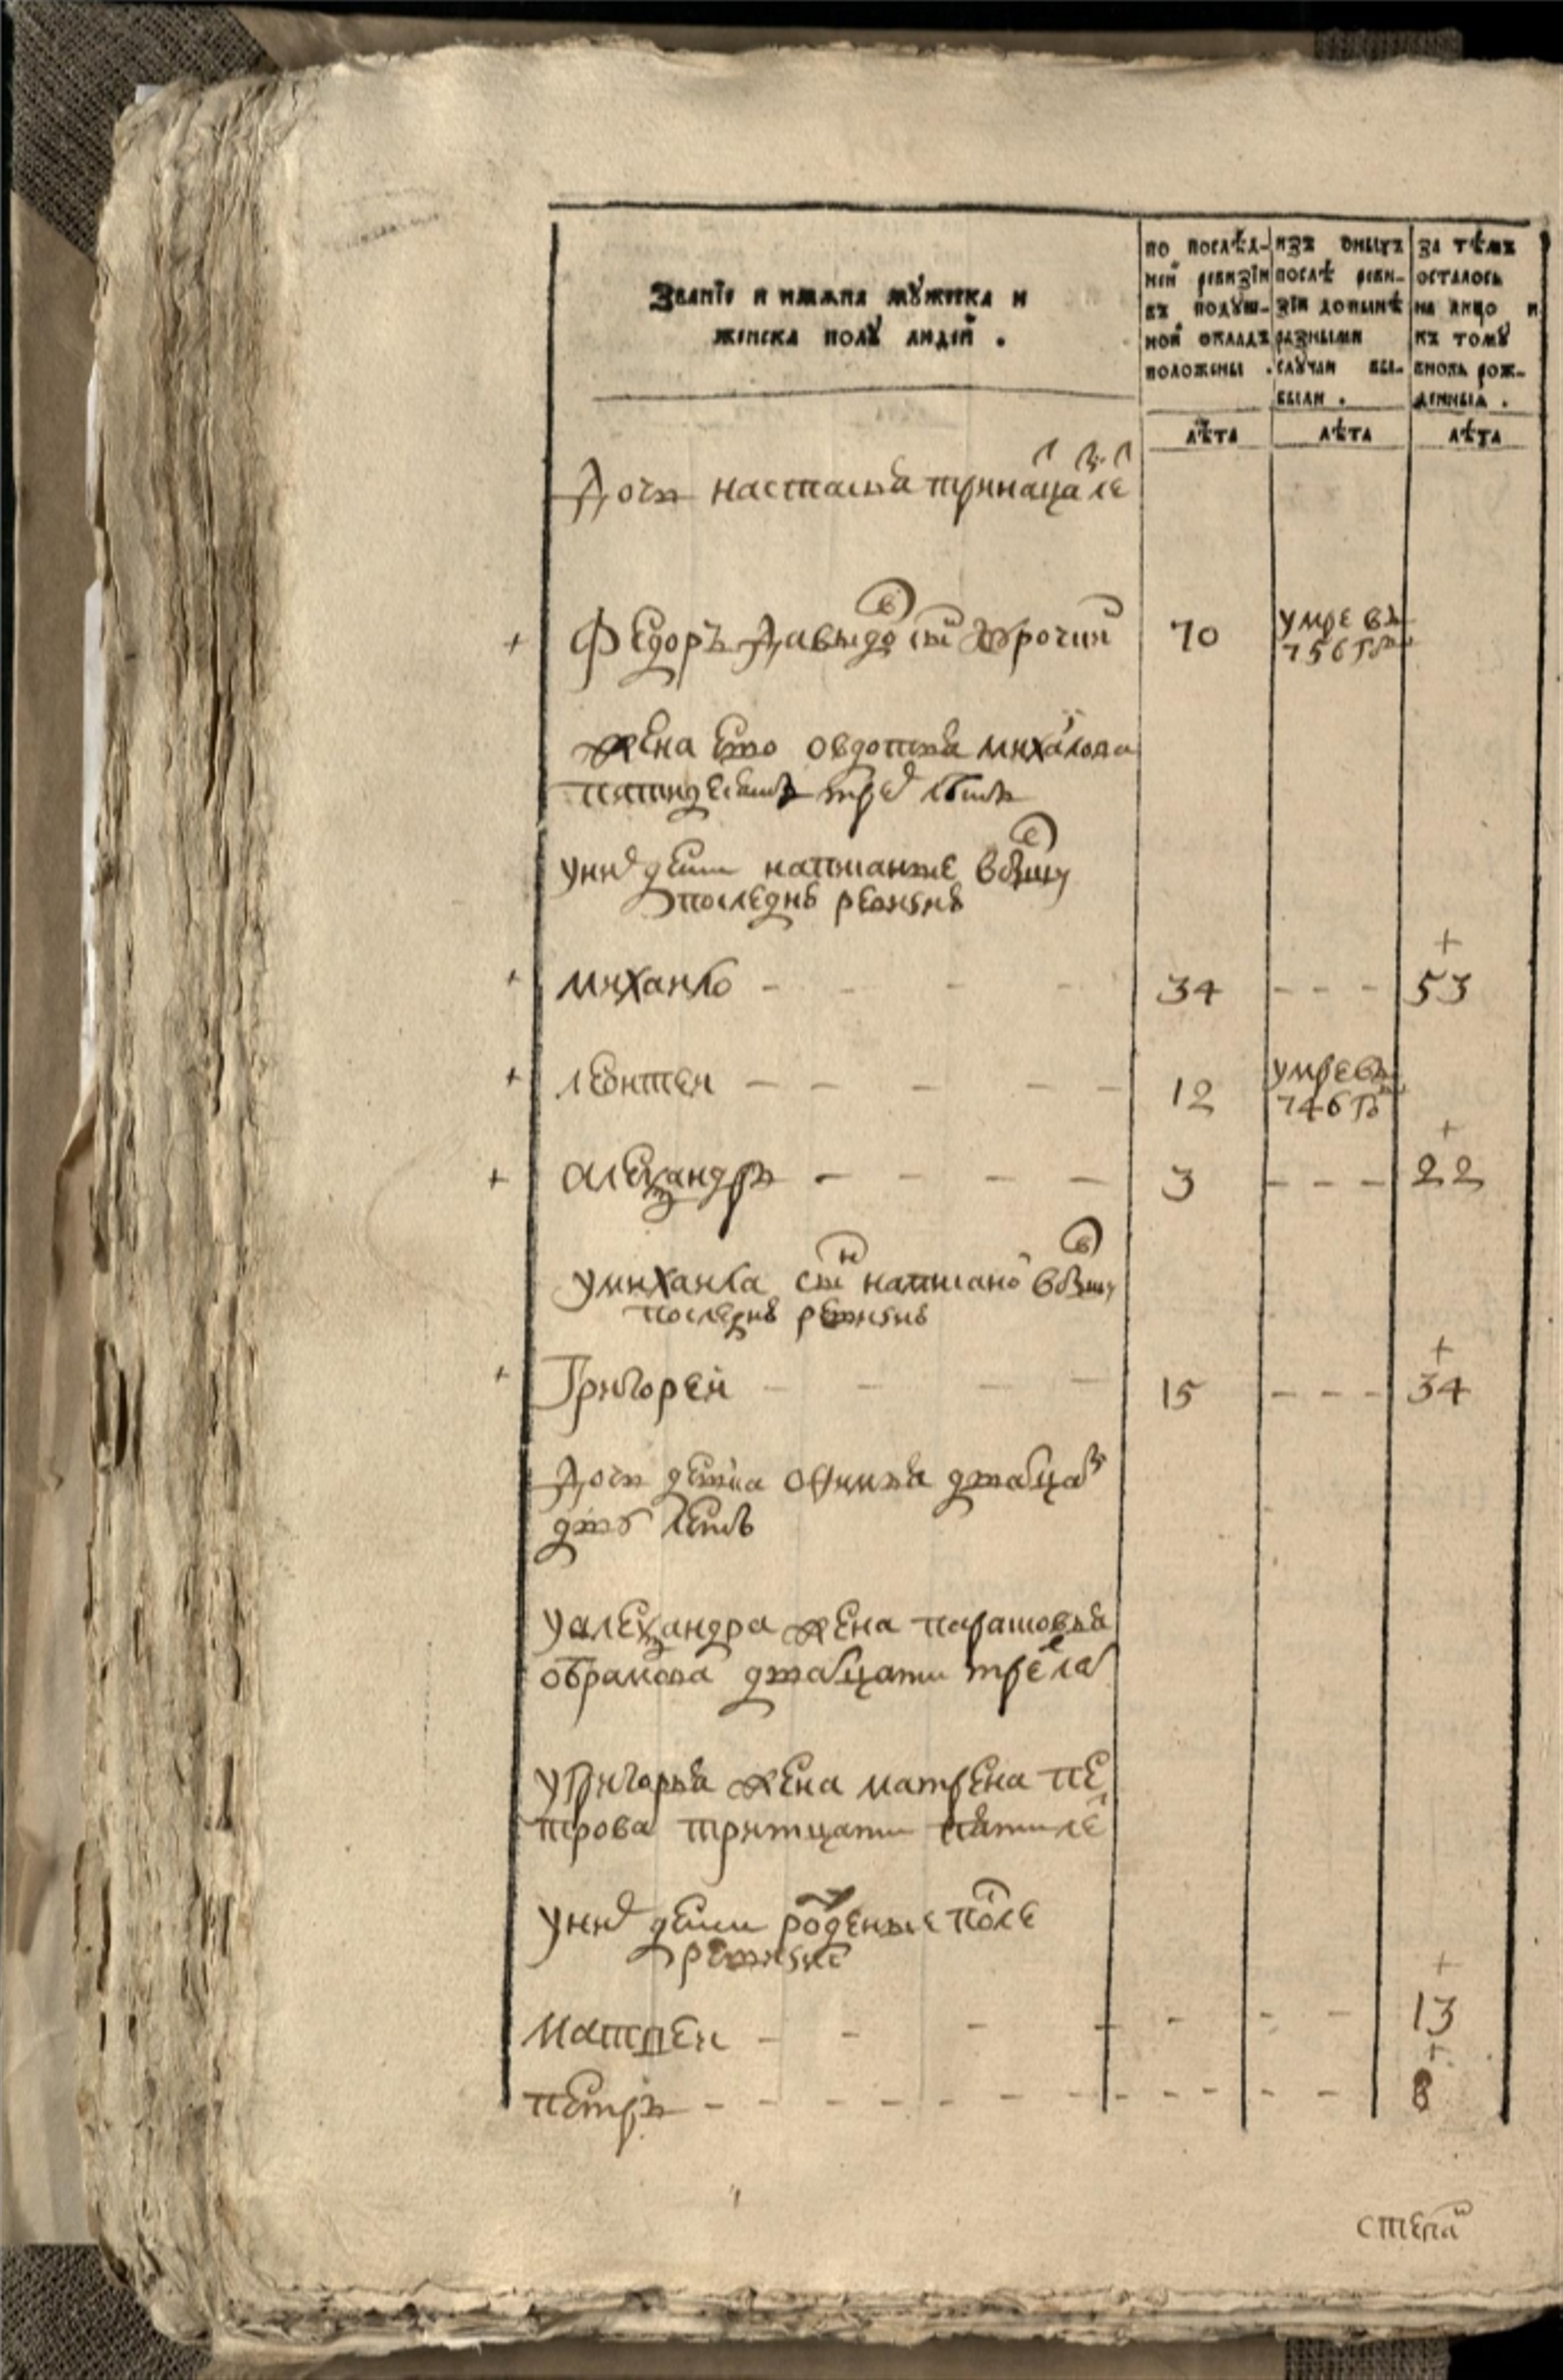 Званїе и имѧна мꙋжеска и
женска полꙋ людей .
по послѣд-
ней ревизїи
въ подꙋш-
ной окладъ
положены .
изъ оныхъ
послѣ реви-
зїи до нынѣ
разными
слꙋчаи вы-
были .
за тѣмъ
осталось
на лицо и
къ томꙋ
вновь рож-
денныѧ .
лѣта лѣта лѣта
Дочь настасья тринаца ле
Федоръ давыдо сы 70 умре въ
756 го
жена ево овдотья михаилова
пятидесятъ трех летъ
у них дети написаные в
последне ревизие
михаило - - - - 34 - - - 53
леонтеи - - - - - 12 умре въ
746 го
александръ - - - - 3 - - - 22
у михаила снъ написано в
последне ревизие
Григореи - - - - 15 - - - 34
Дочь девка офимья двацат
дву летъ
у александра жена парасковья
обрамова двацати трех ле
у григорья жена матрена пе
трова тритцати пяти ле
у них дети рожденые после
ревизие
матвеи - - - - - - - 13
петръ - - - - - - - - - - - - 8
степа